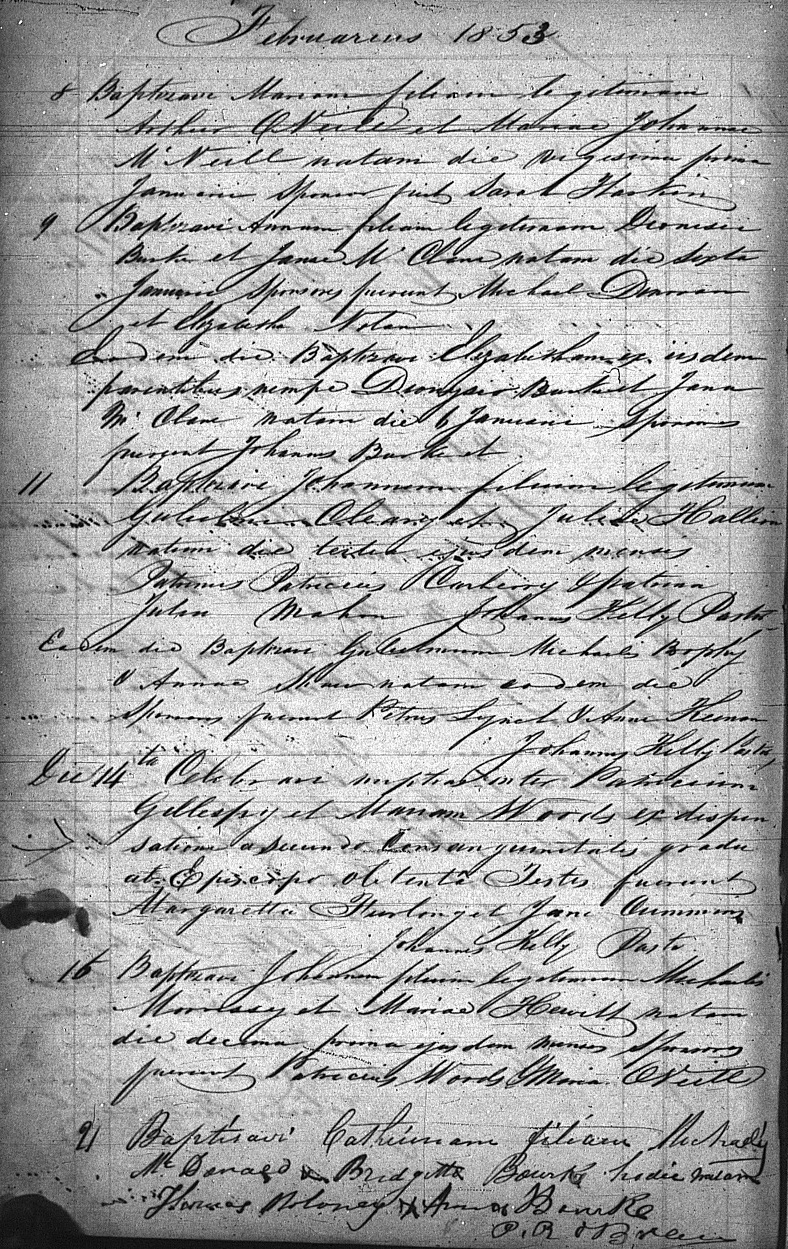 Februarius 1853
8 Baptizavi Mariam filiam legitimam
Arthur O'Neill et Mariae Johannae
McNeill natam die vigesima prima
Januarii Sponsor fuit Sarah Harkin
9 Baptizavi Annam filiam legitimam Dionisii
Burke et Janae McClane natam die sexta
Januarii Sponsors fuerunt Michael
et Elizabetha Nolan
Eodem die Baptizavi Elizabetham ex iisdem
parentibus nempe Dionysio Burke et Jana
McClane natam die 6 Januarii Sponsores
fuerunt Johannes Burke et
11 Baptizavi Johannem filium legitimum
Gulielmi et Juliae
natum die ejusdem mensis
Patrinus Patricius Carberry & patrina
Julia Mahon Johannes Kelly Pastor
Eadem die Baptizavi Gulielmum Michaelis Brophy
& Annae natum eodem die
Sponsores fuerunt Petrus Lynch & Anne
Johannes Kelly Pastor
Die 14to Celebravi nuptias inter Patricium
Gillespy et Mariam Woods ex dispen
satione a secundo Consanguinitatis gradu
ab Episcopo obtenta Testes fuerunt
Margaretta et Jane Cummins
Johannes Kelly Pastor
16 Baptizavi Johannem filium legitimum Michaelis
Morrissy et Mariae Hewitt natum
die decima prima ejusdem mensis Sponsores
fuerunt Patricius Woods & Maria O'Neill
21 Baptisavi Catherinam filiam Michaelis
McDonald & Bridgitta Bourke hodie natam
Thomas Moloney & Anna Bourke